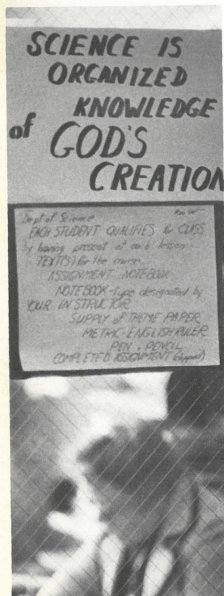 SCIENCE IS
ORGANIZED
KNOWLEDGE
of GOD'S
CREATION
Dept of Science
EACH STUDENT QUALIFIES for CLASS
by having present at each lesson:
TEXT(S) for the course
ASSIGNMENT NOTEBOOK
NOTEBOOK-type designated by
YOUR INSTRUCTOR
SUPPLY of THEME PAPER
METRIC-ENGLISH RULER
PEN + PENCIL
COMPLETED ASSIGNMENT